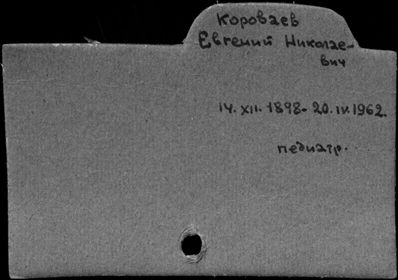 Короваев
Евгений Николае-
вич
14. XII. 1898 - 20. IV. 1962.
педиатр.